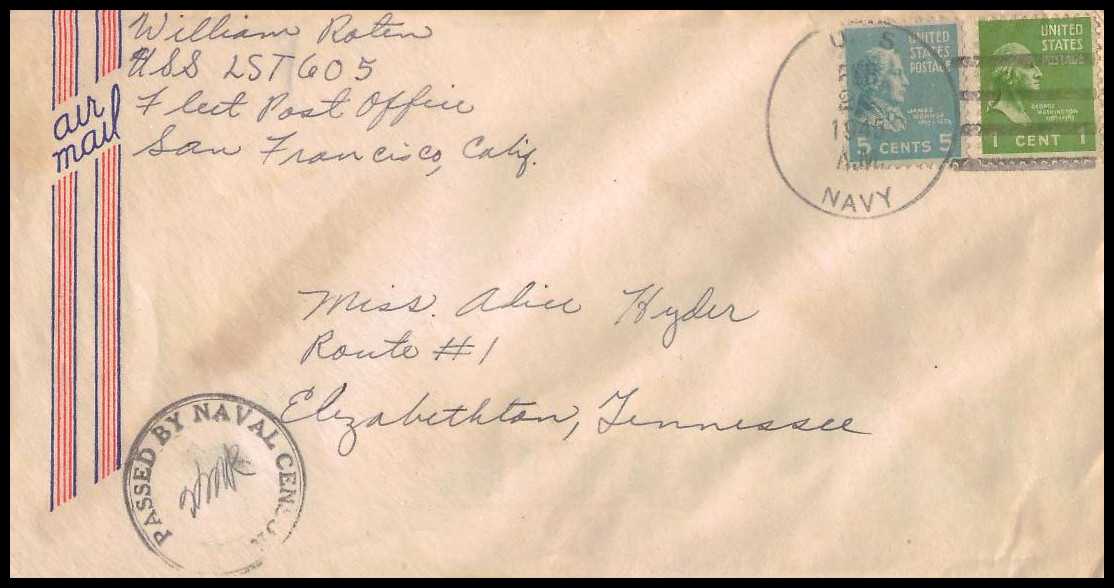 William Roten
USS LST 605
Fleet Post Office
San Francisco, Calif.
air
mail
U. S.
FEB
A.M.
NAVY
UNITED
STATES
POSTAGE
JAMES
MONROE
5 CENTS 5
UNITED
STATES
POSTAGE
GEORGE
WASHINGTON
1 CENT 1
Miss. Alice Hyder
Route #1
Elizabethton, Tennessee
PASSED BY NAVAL CENSOR